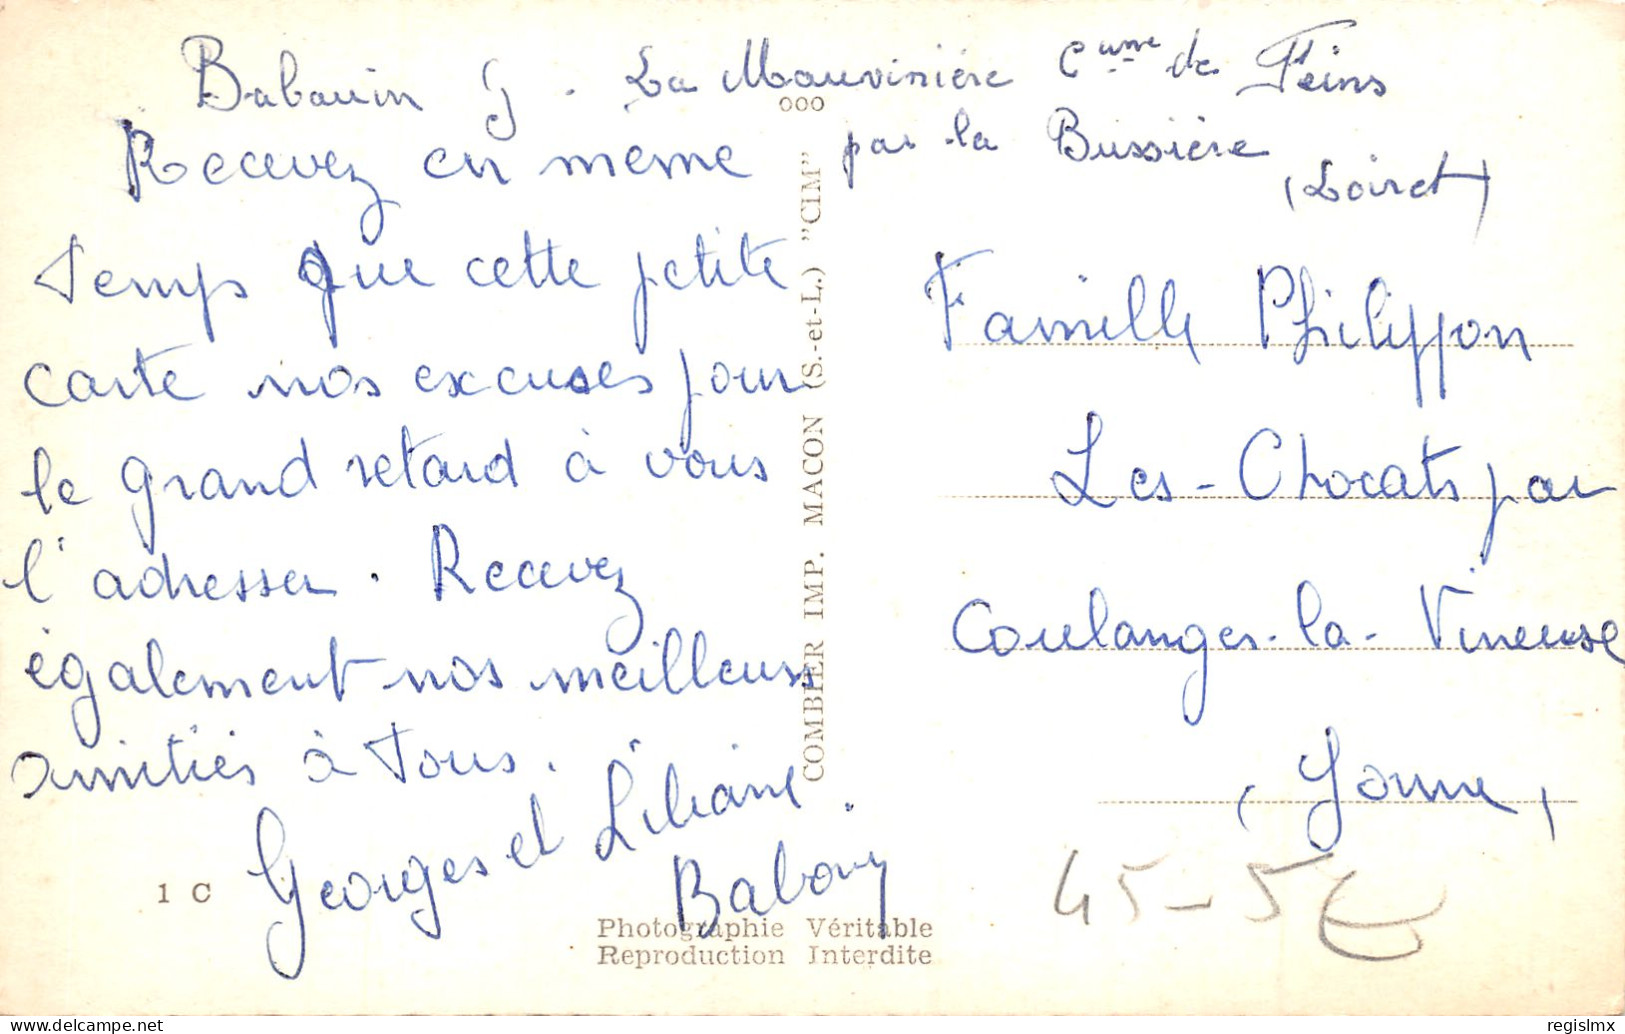 Babouin G. La Mauvinière Cune de Feins
par la Bussière
(Loiret)
Recevez en même
Temps que cette petite
carte nos excuses pour
le grand retard à vous
l'adresser. Recevez
également nos meilleurs
amitiés à Tous.
Georges et Liliane
Babouin
Famille Philippon
Les-Chocats par
Coulanges-la-Vineuse
(Yonne)
45-5€
1 C
000
COMBIER IMP. MACON (S.-et-L.) "CIM"
Photographie Véritable
Reproduction Interdite
delcampe.net
regislmx